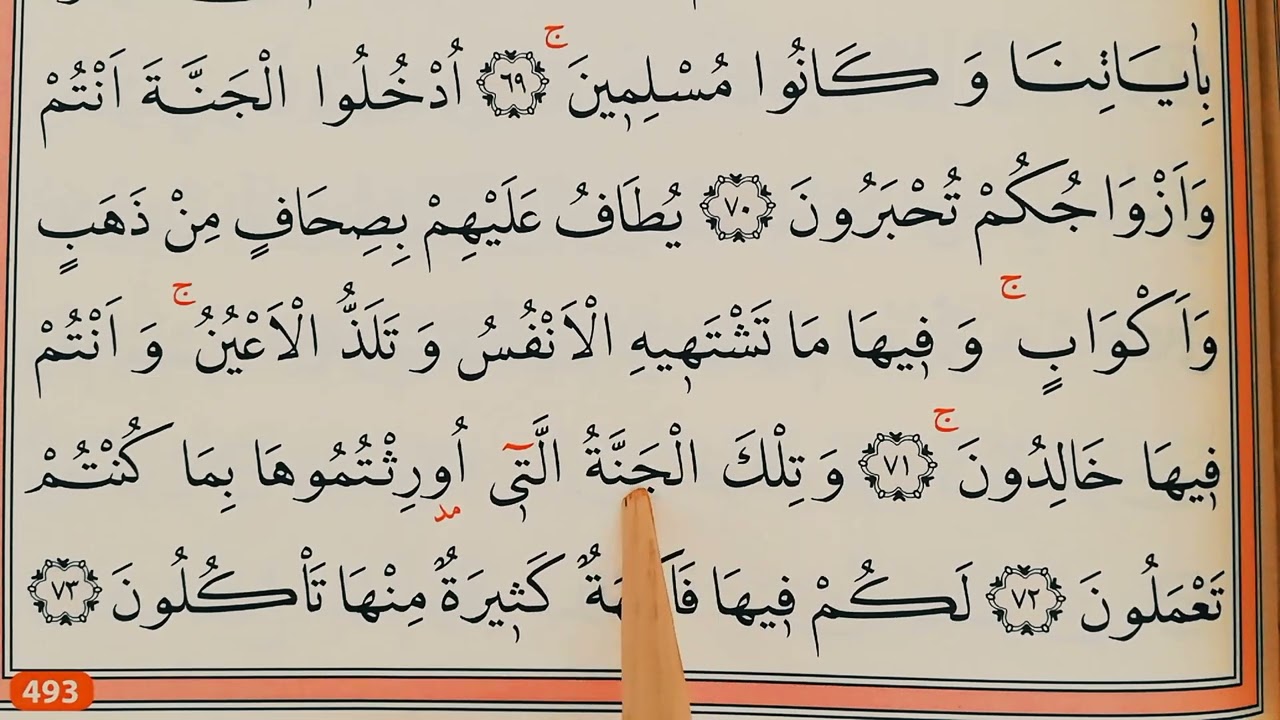 بِاٰيَاتِنَا وَ كَانُوا مُسْلِمٖينَۚ ﴿٦٩﴾ اُدْخُلُوا الْجَنَّةَ اَنْتُمْ
وَاَزْوَاجُكُمْ تُحْبَرُونَ ﴿٧٠﴾ يُطَافُ عَلَيْهِمْ بِصِحَافٍ مِنْ ذَهَبٍ
وَاَكْوَابٍۚ وَ فٖيهَا مَا تَشْتَهٖيهِ الْاَنْفُسُ وَ تَلَذُّ الْاَعْيُنُۚ وَ اَنْتُمْ
فٖيهَا خَالِدُونَۚ ﴿٧١﴾ وَ تِلْكَ الْجَنَّةُ الَّتٖٓى اُورِثْتُمُوهَا بِمَا كُنْتُمْ
مد
تَعْمَلُونَ ﴿٧٢﴾ لَكُمْ فٖيهَا كَثٖيرَةٌ مِنْهَا تَأْكُلُونَ ﴿٧٣﴾
493